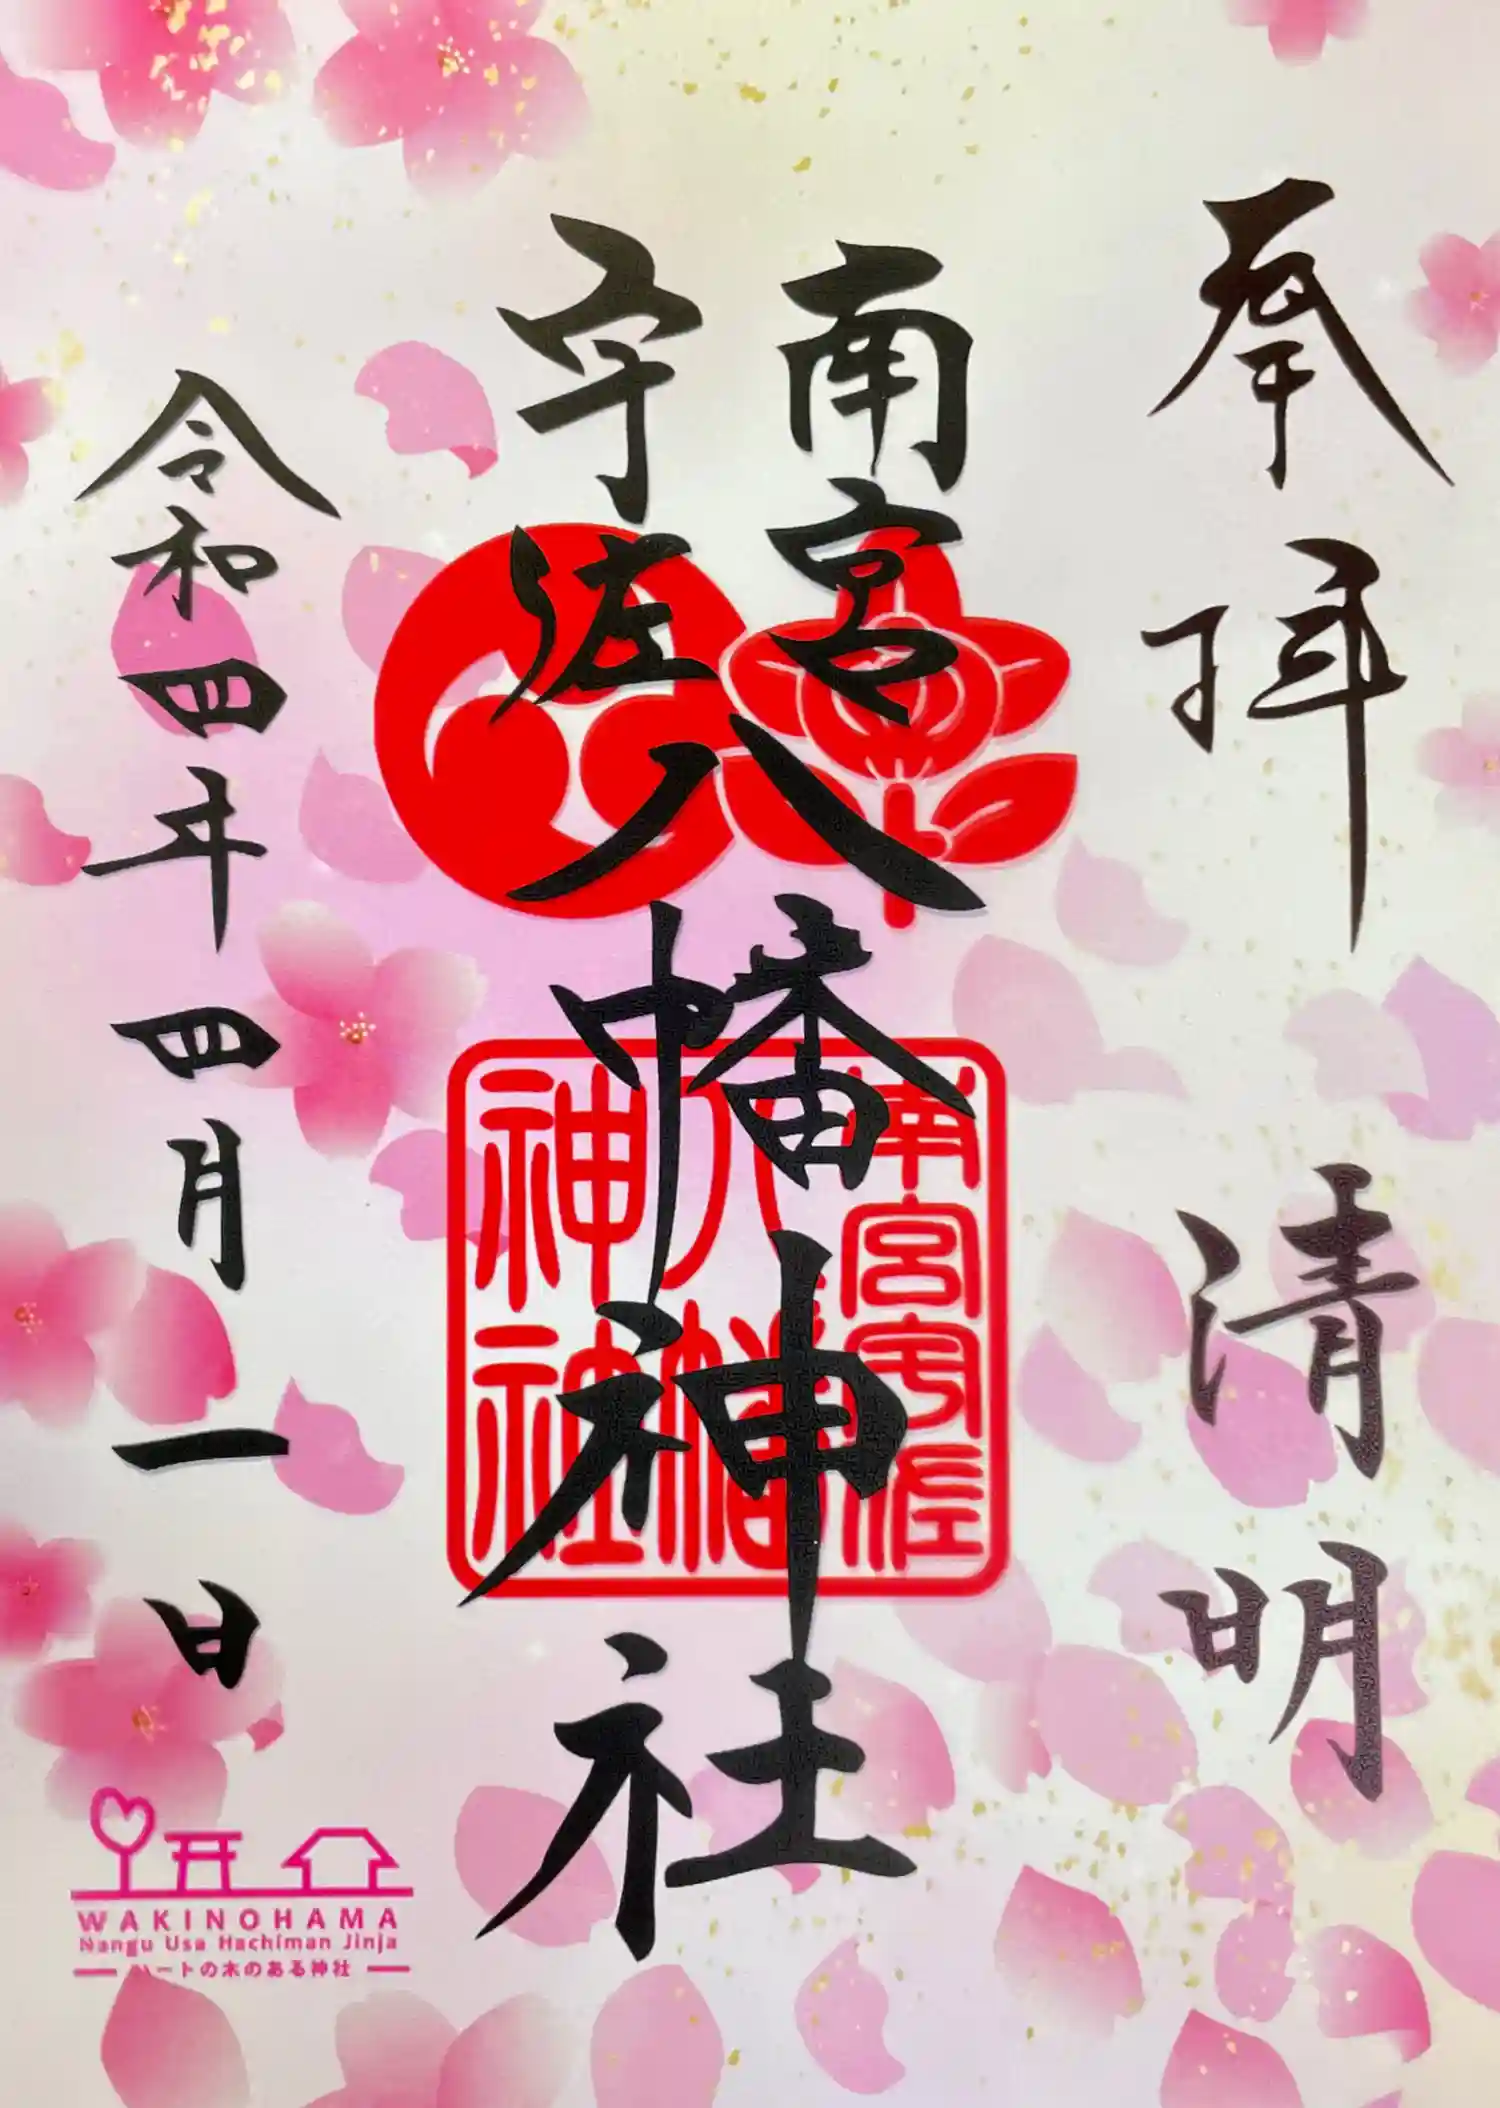 奉拝 清明
南宮
宇佐八幡神社
南宮宇佐
八幡
神社
令和四年四月一日
WAKINOHAMA
Nangu Usa Hachiman Jinja
ハートの木のある神社